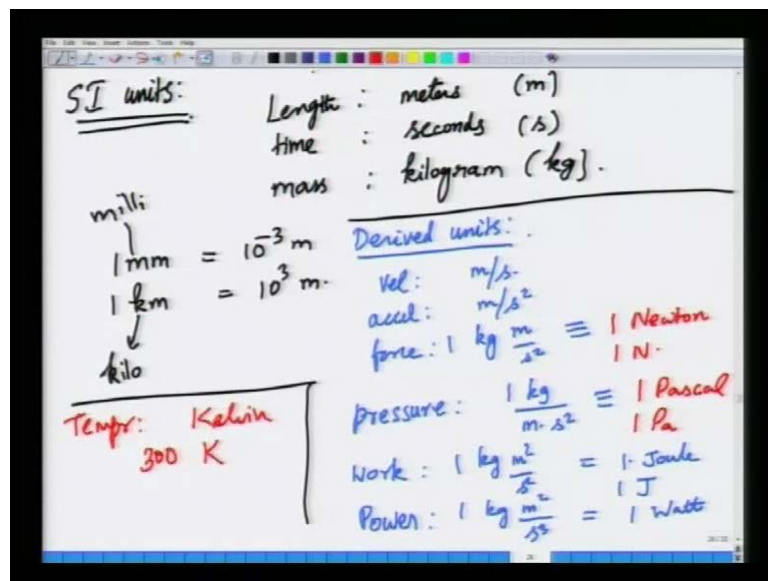 File Edit View Insert Actions Tools Help
SI units:
Length : meters (m)
time : seconds (s)
mass : kilogram (kg).
milli
1 mm = 10⁻³ m
1 km = 10³ m.
kilo
Tempr: Kelvin
300 K
Derived units:
vel: m/s.
accel: m/s²
force: 1 kg m/s² ≡ 1 Newton
1 N.
pressure: 1 kg/m·s² ≡ 1 Pascal
1 Pa
Work: 1 kg m²/s² = 1 Joule
1 J
Power: 1 kg m²/s³ = 1 Watt